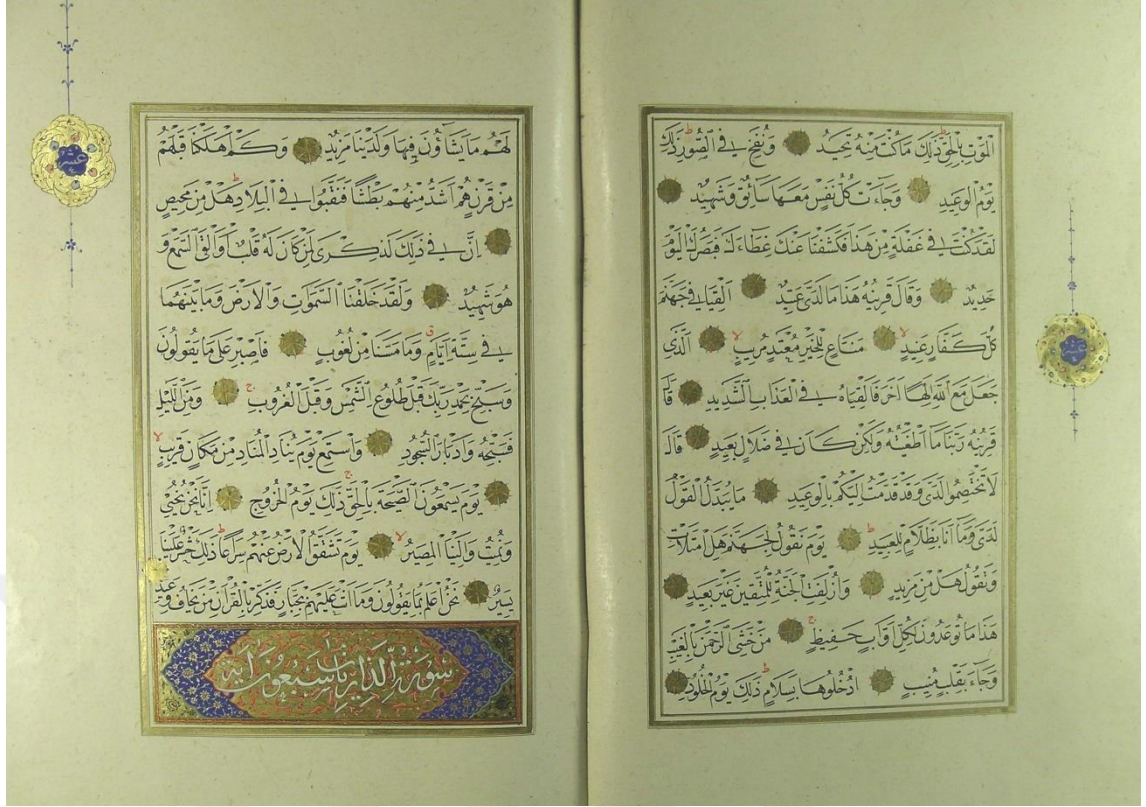 الْمَوْتِ بِالْحَقِّ ذَلِكَ مَا كُنْتَ مِنْهُ تَحِيدُ وَنُفِخَ فِي الصُّورِ ذَلِكَ
يَوْمُ الْوَعِيدِ وَجَاءَتْ كُلُّ نَفْسٍ مَعَهَا سَائِقٌ وَشَهِيدٌ
لَقَدْ كُنْتَ فِي غَفْلَةٍ مِنْ هَذَا فَكَشَفْنَا عَنْكَ غِطَاءَكَ فَبَصَرُكَ الْيَوْمَ
حَدِيدٌ وَقَالَ قَرِينُهُ هَذَا مَا لَدَيَّ عَتِيدٌ اَلْقِيَا فِي جَهَنَّمَ
كُلَّ كَفَّارٍ عَنِيدٍ مَنَّاعٍ لِلْخَيْرِ مُعْتَدٍ مُرِيبٍ اَلَّذِي
جَعَلَ مَعَ اللَّهِ اِلَهًا اَخَرَ فَاَلْقِيَاهُ فِي الْعَذَابِ الشَّدِيدِ قَالَ
قَرِينُهُ رَبَّنَا مَا اَطْغَيْتُهُ وَلَكِنْ كَانَ فِي ضَلَالٍ بَعِيدٍ قَالَ
لَا تَخْتَصِمُوا لَدَيَّ وَقَدْ قَدَّمْتُ اِلَيْكُمْ بِالْوَعِيدِ مَا يُبَدَّلُ الْقَوْلُ
لَدَيَّ وَمَا اَنَا بِظَلَّامٍ لِلْعَبِيدِ يَوْمَ نَقُولُ لِجَهَنَّمَ هَلِ امْتَلَأْتِ
وَتَقُولُ هَلْ مِنْ مَزِيدٍ وَاُزْلِفَتِ الْجَنَّةُ لِلْمُتَّقِينَ غَيْرَ بَعِيدٍ
هَذَا مَا تُوعَدُونَ لِكُلِّ اَوَّابٍ حَفِيظٍ مَنْ خَشِيَ الرَّحْمَنَ بِالْغَيْبِ
وَجَاءَ بِقَلْبٍ مُنِيبٍ اُدْخُلُوهَا بِسَلَامٍ ذَلِكَ يَوْمُ الْخُلُودِ
عشر
لَهُمْ مَا يَشَاؤُنَ فِيهَا وَلَدَيْنَا مَزِيدٌ وَكَمْ اَهْلَكْنَا قَبْلَهُمْ
مِنْ قَرْنٍ هُمْ اَشَدُّ مِنْهُمْ بَطْشًا فَنَقَّبُوا فِي الْبِلَادِ هَلْ مِنْ مَحِيصٍ
اِنَّ فِي ذَلِكَ لَذِكْرَى لِمَنْ كَانَ لَهُ قَلْبٌ اَوْ اَلْقَى السَّمْعَ وَ
هُوَ شَهِيدٌ وَلَقَدْ خَلَقْنَا السَّمَوَاتِ وَالْاَرْضَ وَمَا بَيْنَهُمَا
فِي سِتَّةِ اَيَّامٍ وَمَا مَسَّنَا مِنْ لُغُوبٍ فَاصْبِرْ عَلَى مَا يَقُولُونَ
وَسَبِّحْ بِحَمْدِ رَبِّكَ قَبْلَ طُلُوعِ الشَّمْسِ وَقَبْلَ الْغُرُوبِ وَمِنَ اللَّيْلِ
فَسَبِّحْهُ وَاَدْبَارَ السُّجُودِ وَاسْتَمِعْ يَوْمَ يُنَادِ الْمُنَادِ مِنْ مَكَانٍ قَرِيبٍ
يَوْمَ يَسْمَعُونَ الصَّيْحَةَ بِالْحَقِّ ذَلِكَ يَوْمُ الْخُرُوجِ اِنَّا نَحْنُ نُحْيِي
وَنُمِيتُ وَاِلَيْنَا الْمَصِيرُ يَوْمَ تَشَقَّقُ الْاَرْضُ عَنْهُمْ سِرَاعًا ذَلِكَ حَشْرٌ عَلَيْنَا
يَسِيرٌ نَحْنُ اَعْلَمُ بِمَا يَقُولُونَ وَمَا اَنْتَ عَلَيْهِمْ بِجَبَّارٍ فَذَكِّرْ بِالْقُرْاَنِ مَنْ يَخَافُ وَعِيدِ
سورة الذاريات سبعون اية
عشر